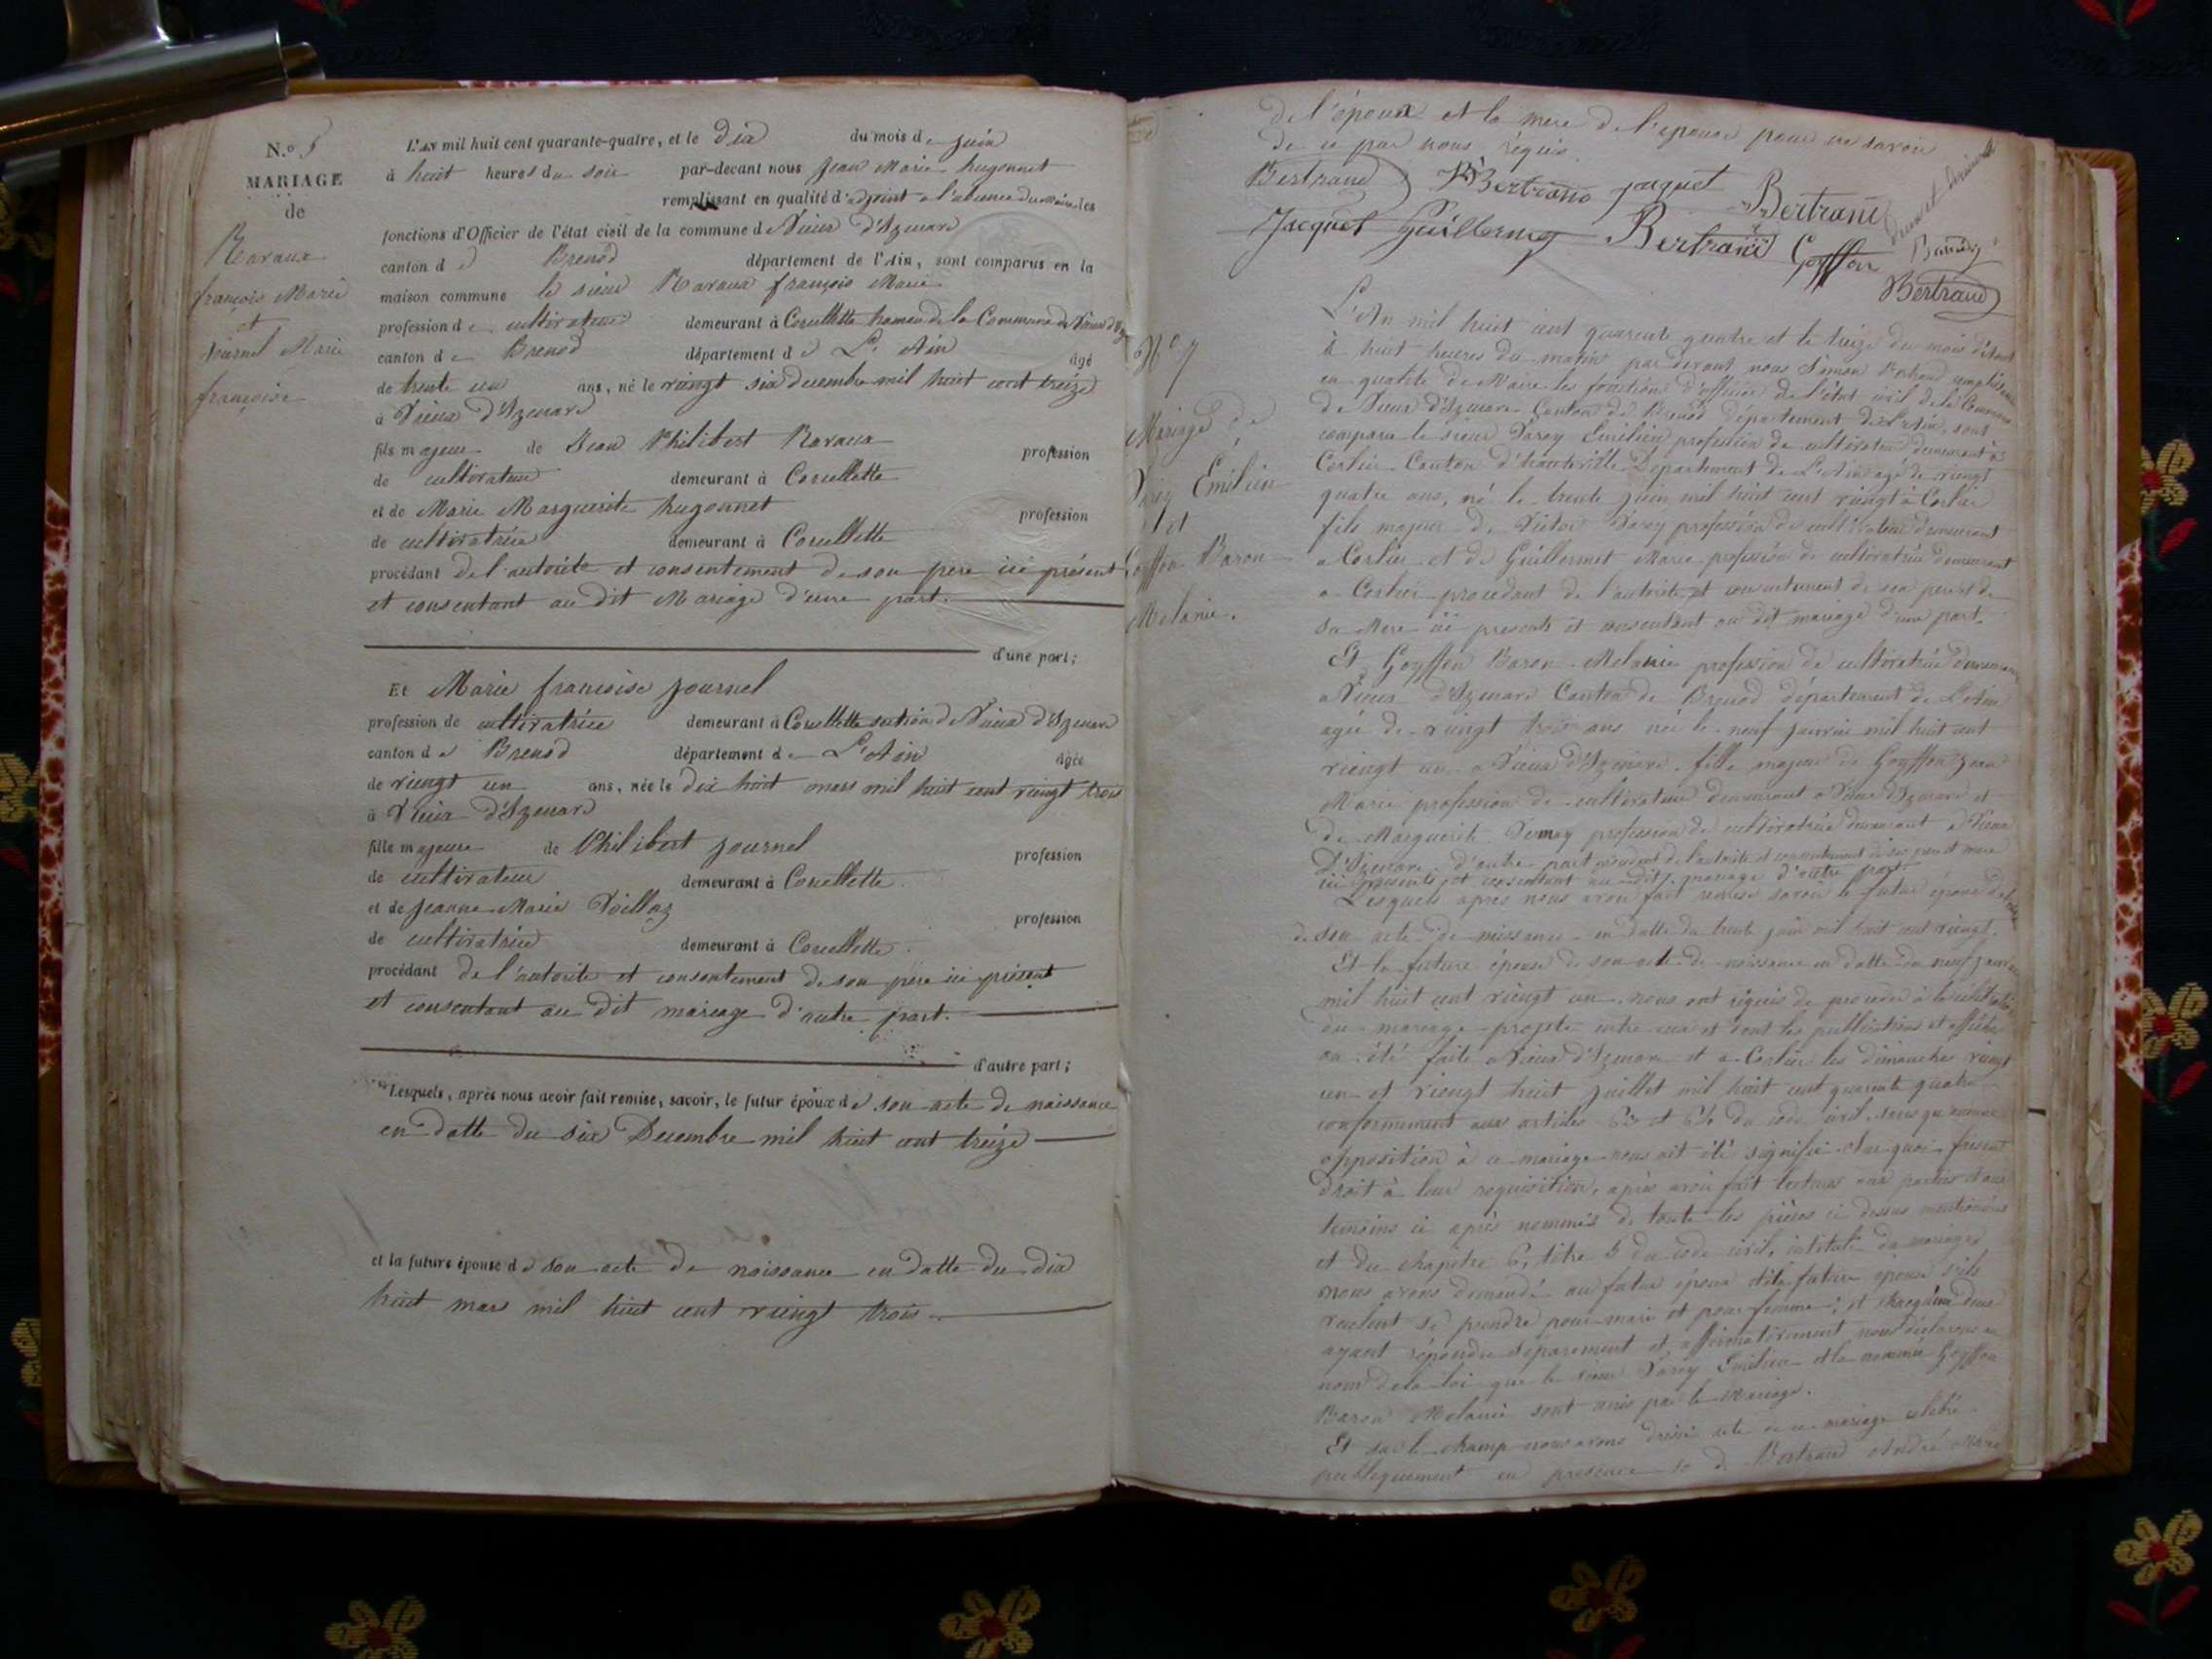 N.o 5
MARIAGE
de
Ravaux
françois Marie
et
Journel Marie
françoise
L'AN mil huit cent quarante-quatre, et le dix du mois de juin
à huit heures du soir par-devant nous Jean Marie hugonnet
remplissant en qualité d'adjoint a l'absence du maire les
fonctions d'Officier de l'état civil de la commune de Vieux d'Izenave
canton de Brenod département de l'Ain, sont comparus en la
maison commune le sieur Ravaux françois Marie
profession de cultivateur demeurant à Corcellette hameau de la Commune de Vieux d'Iz
canton de Brenod département de L'Ain âgé
de trente un ans, né le vingt six decembre mil huit cent treize
à Vieux d'Izenave
fils majeur de Jean Philibert Ravaux profession
de cultivateur demeurant à Corcellette
et de Marie Marguerite hugonnet profession
de cultivatrice demeurant à Corcellette
procédant de l'autorite et consentement de son pere ici présent
et consentant au dit Mariage d'une part.
d'une part;
Et Marie francoise journel
profession de cultivatrice demeurant à Corcellette section de Vieux d'Izenave
canton de Brenod département de L'Ain âgée
de vingt un ans, née le dix huit mars mil huit cent vingt trois
à Vieux d'Izenave
fille majeure de Philibert journel profession
de cultivateur demeurant à Corcellette
et de jeanne Marie Voillaz profession
de cultivatrice demeurant à Corcellette
procédant de l'autorite et consentement de son père ici présent
et consentant au dit mariage d'autre part.
d'autre part;
Lesquels, après nous avoir fait remise, savoir, le futur époux de son acte de naissance
en datte du six Decembre mil huit cent treize
et la future épouse de son acte de naissance en datte du dix
huit mars mil huit cent vingt trois
de l'époux et la mere de l'epouse pour ne savoir
de ce par nous réquis
Bertrand Bertrand jacquet Bertrand
Jacquet Guillermet Bertrand Goyffon
Bertrand
No 7
Mariage de
Varey Emilien
et
Goyffon Baron
Melanie.
L'An mil huit cent quarente quatre et le treize du mois d'Aout
à huit heures du matin par devant nous Simon Bertrand remplissant
en qualité de Maire les fonctions d'officier de l'état civil de la Commune
de Vieux d'Izenave Canton de Brenod département de L'Ain, sont
comparu le sieur Varey Emilien profession de cultivateur demeurant à
Corlier Canton d'hauteville Département de L'Ain agé de vingt
quatre ans, né le trente juin mil huit cent vingt à Corlier
fils majeur de Victor Varey profession de cultivateur demeurant
a Corlier et de Guillermet Marie profession de cultivatrice demeurant
a Corlier procedant de l'autorite et consentement de son pere et de
sa Mere ici presents et consentant au dit mariage d'une part.
Et Goyffon Baron Melanie profession de cultivatrice demeurant
a Vieux d'Izenave Canton de Brenod département de L'Ain
agée de vingt trois ans née le neuf janvier mil huit cent
vingt un a Vieux d'Izenave fille majeur de Goyffon Jean
Marie profession de cultivateur demeurant a Vieux d'Izenave et
de Marguerite profession de cultivatrice demeurant a Vieux
D'Izenave d'autre part procedant de l'autorite et consentement de ses pere et mere
ici presents et consentant au dit mariage d'autre part
Lesquels apres nous avoir fait remise savoir le futur époux
de son acte de naissance en datte du trente juin mil huit cent vingt.
Et la future épouse de son acte de naissance en datte du neuf janvier
mil huit cent vingt un, nous ont réquis de proceder à la célébration
du mariage projeté entre eux et dont les publications et affiches
on été faite a Vieux d'Izenave et a Corlier les dimanches vingt
un et vingt huit juillet mil huit cent quarente quatre
conformement aux articles 63 et 64 du code civil, sans qu'aucune
opposition à ce mariage nous ait été signifié. Sur quoi faisant
droit à leur requisition, après avoir fait lecture aux parties et aux
temoins ci après nommés de toute les pièces ci dessus mentionnées
et du chapitre 6, titre 5 du code civil, intitulé du mariage
nous avons demandé au futur époux et à la future épouse s'ils
veulent se prendre pour mari et pour femme; et chaqu'un d'eux
ayant répondu séparement et affirmativement, nous déclarons au
nom de la loi que le sieur Varey Emilien et la nommée Goyffon
Baron Melanie sont unis par le Mariage.
Et sur le champ nous avons dressé acte de ce mariage célébré
publiquement en presence de Bertrand André Marie